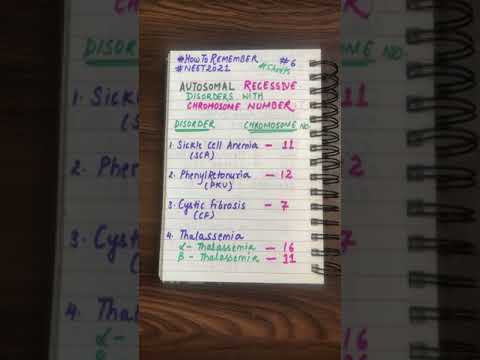 #HowToRemember #6
#NEET2021 #Shorts
AUTOSOMAL RECESSIVE
DISORDERS WITH
CHROMOSOME NUMBER
DISORDER CHROMOSOME NO.
1. Sickle Cell Anemia – 11
(SCA)
2. Phenylketonuria – 12
(PKU)
3. Cystic Fibrosis – 7
(CF)
4. Thalassemia
α - Thalassemia – 16
β - Thalassemia – 11